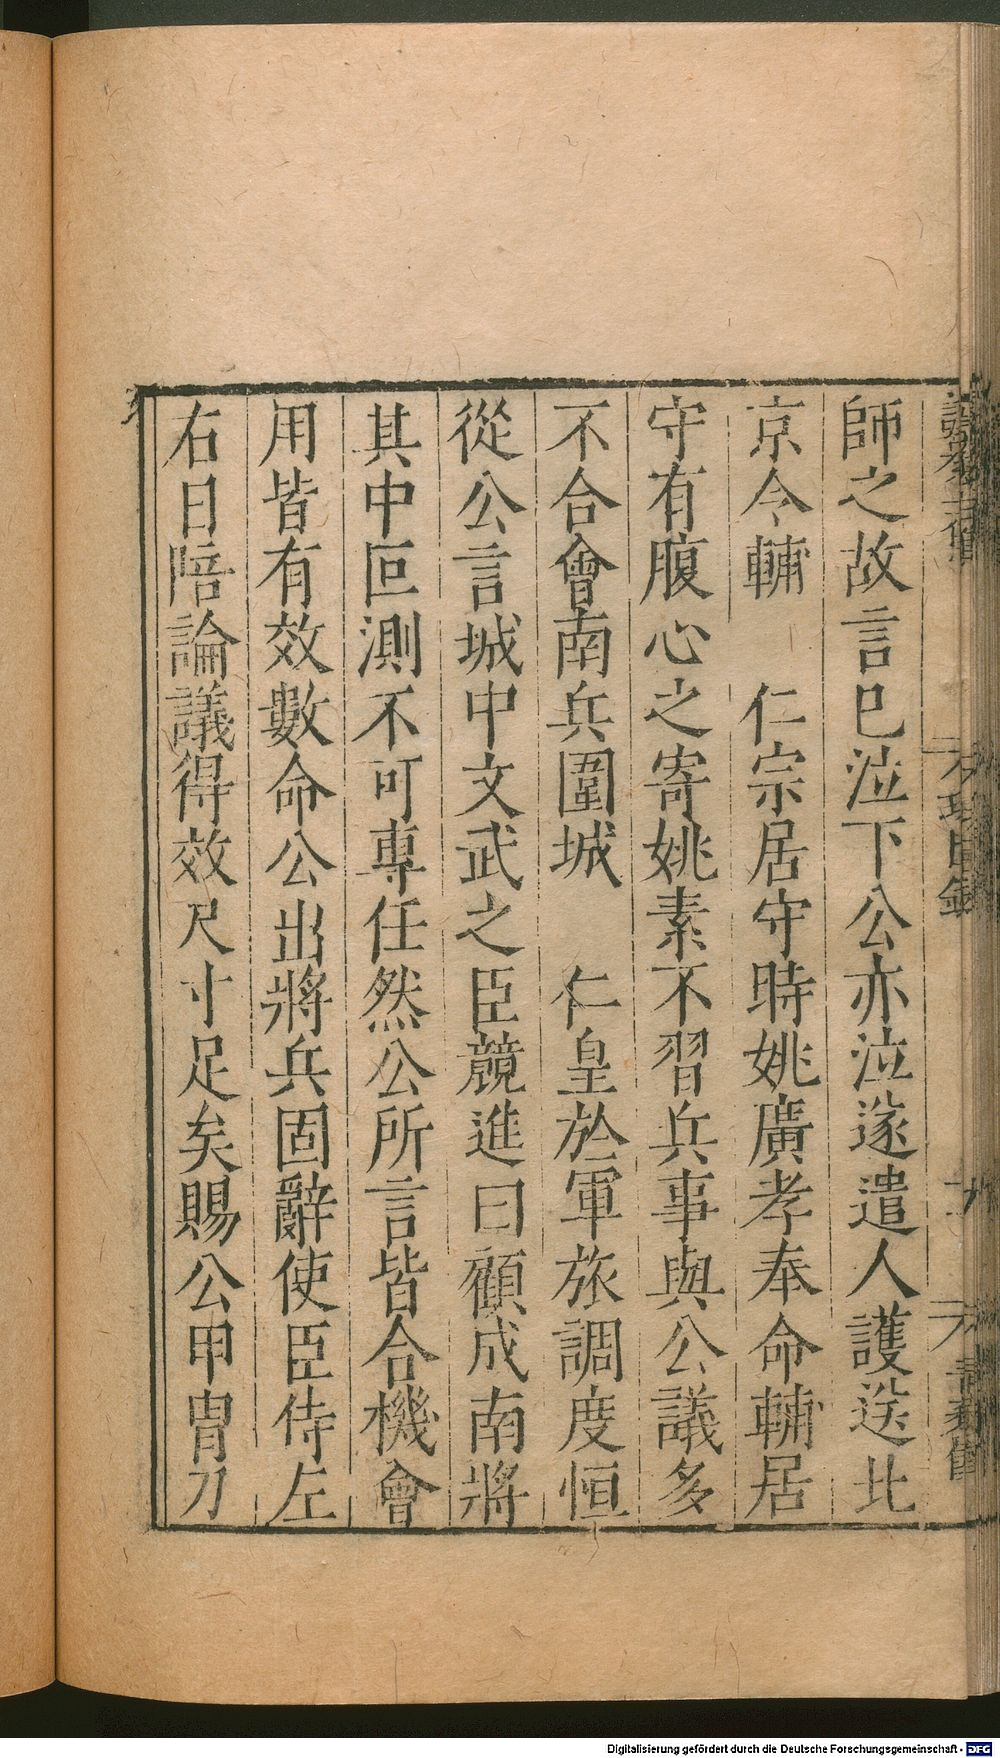 師之故言已泣下公亦泣遂遣人護送北
京令輔　仁宗居守時姚廣孝奉命輔居
守有腹心之寄姚素不習兵事與公議多
不合會南兵圍城　仁皇於軍旅調度恒
從公言城中文武之臣競進曰顧成南將
其中叵測不可專任然公所言皆合機會
用皆有效數命公出將兵固辭使臣侍左
右日陪論議得效尺寸足矣賜公甲冑刀
Digitalisierung gefördert durch die Deutsche Forschungsgemeinschaft - DFG